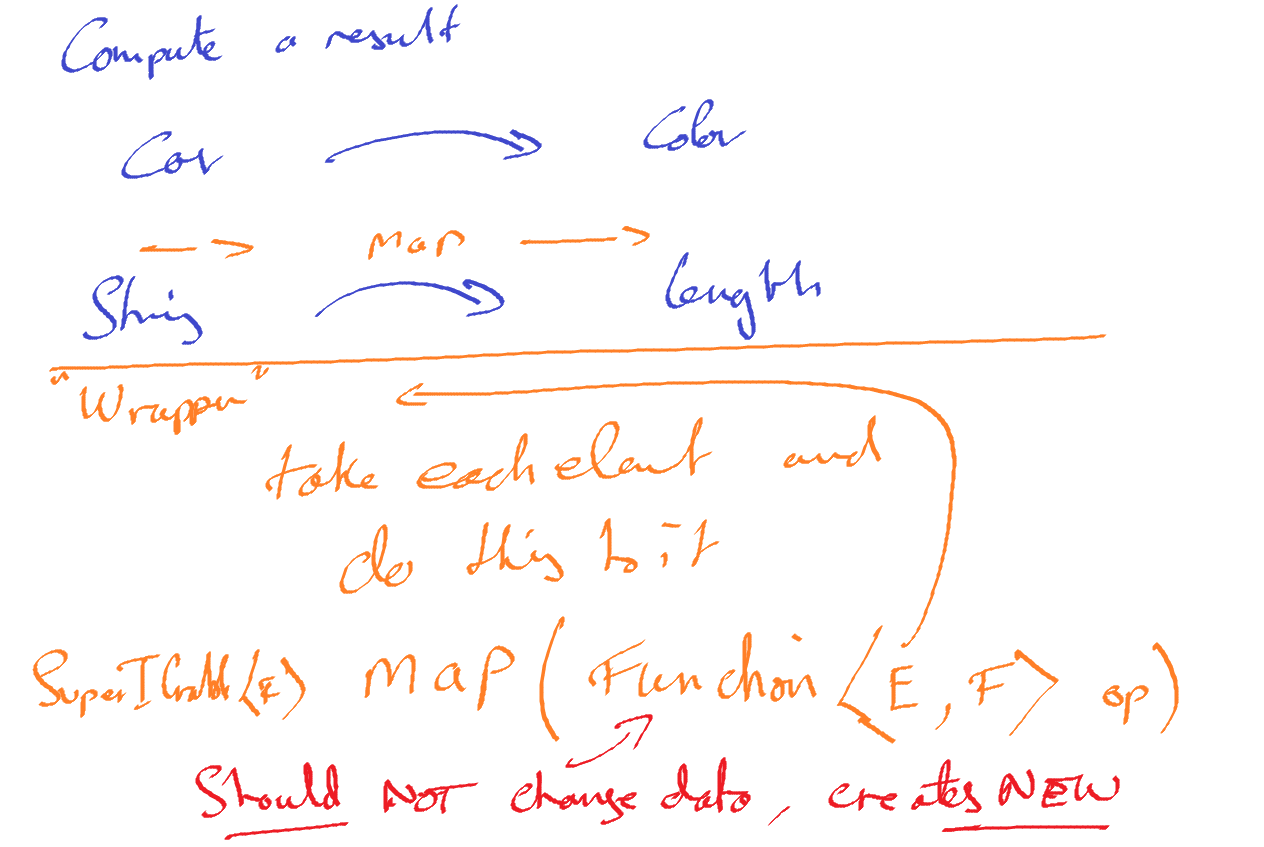 Compute a result
Car Color
Map
String length
"Wrapper"
take each element and
do this to it
SuperIterable<F> Map (Function<E, F> op)
Should NOT change data, creates NEW